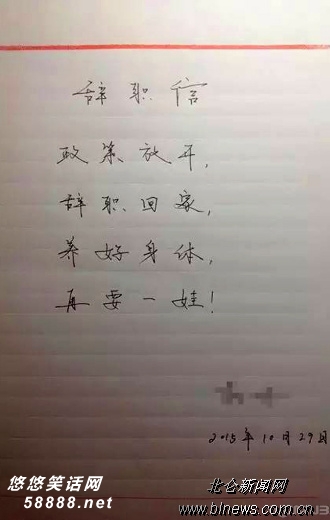 辞职信
政策放开,
辞职回家,
养好身体,
再要一娃!
2015年10月29日
悠悠笑话网
58888.net
北仑新闻网
www.blnews.com.cn